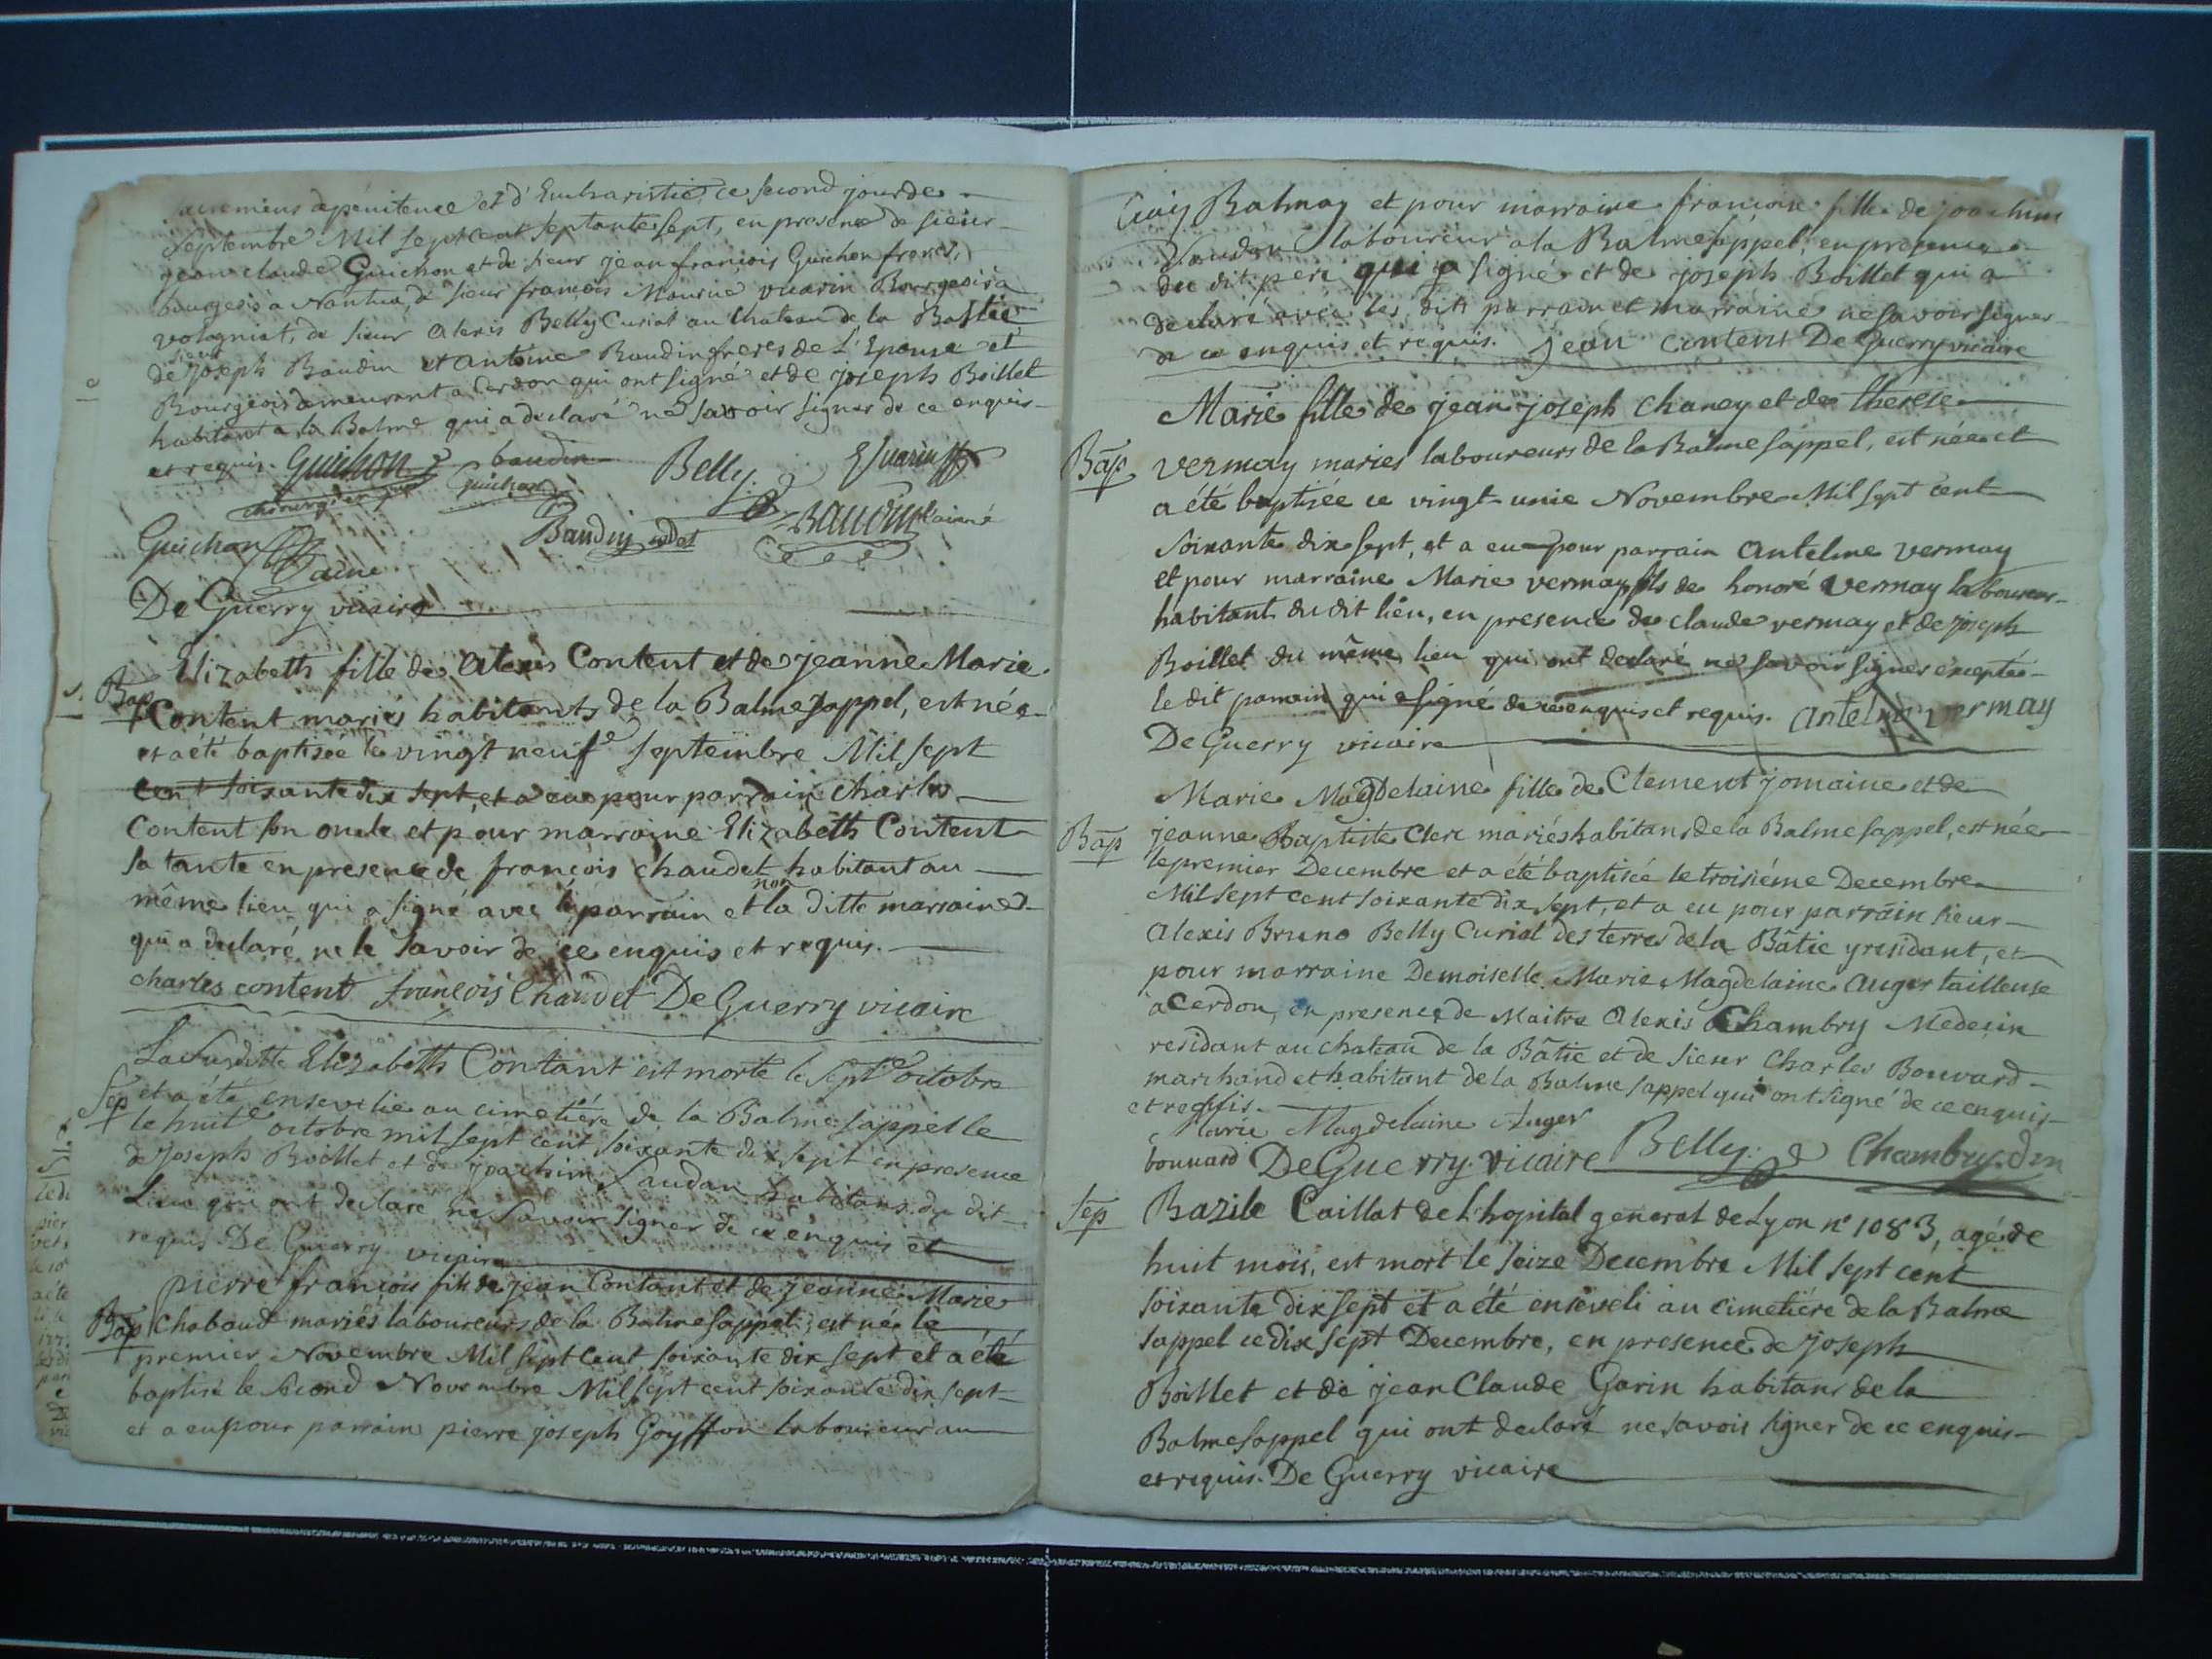 sacremens de penitence et d'Eucharistie ce second jour de
Septembre Mil sept cent septante sept, en presence de sieur
jean claude Guichon et de sieur jean françois Guichon freres,
bourgeois a Nantua, de sieur françois Bourgeois a
vologniat, de sieur alexis Belly Curial au Chateau de la Bastie
sieur
de joseph Baudin et antoine Baudin freres de L'Epouse et
Bourgeois demeurant a Cerdon qui ont signé et de joseph Boillet
habitant a la Balme qui a declaré ne savoir signer de ce enquis
et requis. Guichon baudin Belly
Guichon
Guichon l'ainé Baudin cadet Baudin l'ainé
De Guerry vicaire
Elizabeth fille de alexis Content et de jeanne Marie
Bap
Content mariés habitants de la Balme sappel, est née
et a été baptisée le vingt neuf septembre Mil sept
cent soixante dix sept, et a eu pour parrain charles
Content son oncle et pour marraine Elizabeth Content
sa tante en presence de françois chaudet habitant au
même lieu qui a signé avec le parrain et non la ditte marraine
qui a declaré ne le savoir de ce enquis et requis.
charles content françois Chaudet De Guerry vicaire
La susditte Elizabeth Contant est morte le sept octobre
Sep
et a été ensevelie au cimetiére de la Balme sappel le
le huit octobre mil sept cent soixante dix sept en presence
de joseph Boillet et de joachim Landan habitans du dit
Lieu qui ont declaré ne savoir signer de ce enquis et
requis De Guerry vicaire
pierre françois fils de jean Contant et de jeanne Marie
Bap
Chaboud mariés laboureurs de la Balme sappel, est né le
premier Novembre Mil sept Cent soixante dix sept et a été
baptisé le second Novembre Mil sept cent soixante dix sept
et a eu pour parrain pierre joseph Goyffon laboureur au
Balmay et pour marraine françoise fille de joachim
Landan laboureur a la Balme sappel, en presence
du dit pere qui a signé et de joseph Boillet qui a
declaré avec les dits parrain et marraine ne savoir signer
de ce enquis et requis. jean content De Guerry vicaire
Marie fille de jean joseph Chaney et de therese
Bap
vermay mariés laboureurs de la Balme sappel, est née et
a été baptisée ce vingt unie Novembre Mil sept cent
soixante dix sept, et a eu pour parrain antelme vermay
et pour marraine Marie vermay fils de honoré vermay laboureur
habitant du dit lieu, en presence de claude vermay et de joseph
Boillet du même lieu qui ont declaré ne savoir signer exceptée
le dit parrain qui a signé de ce enquis et requis. antelme vermay
De Guerry vicaire
Marie Magdelaine fille de Clement jomaine et de
Bap
jeanne Baptiste Clerc mariés habitans de la Balme sappel, est née
le premier Decembre et a été baptisée le troisiéme Decembre
Mil sept cent soixante dix sept, et a eu pour parrain sieur
alexis Bruno Belly Curial des terres de la Bâtie y residant, et
pour marraine Demoiselle Marie Magdelaine auger tailleuse
a Cerdon, en presence de Maitre alexis Chambry Medecin
residant au chateau de la Bâtie et de sieur Charles Bouvard
marchand et habitant de la Balme sappel qui ont signé de ce enquis
et requis.
Marie Magdelaine Auger
bouuard De Guerry vicaire Belly Chambry
Sep
Bazile Caillat de L'hopital general de Lyon n° 1083, agé de
huit mois, est mort le seize Decembre Mil sept cent
soixante dix sept et a été enseveli au cimetiére de la Balme
sappel ce dix sept Decembre, en presence de joseph
Boillet et de jean Claude Garin habitans de la
Balme sappel qui ont declaré ne savoir signer de ce enquis
et requis. De Guerry vicaire